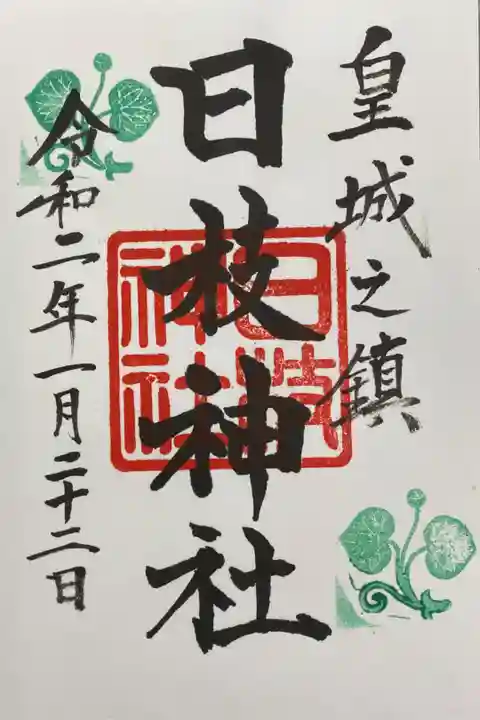 皇城之鎮
日枝神社
日枝神社
令和二年一月二十二日